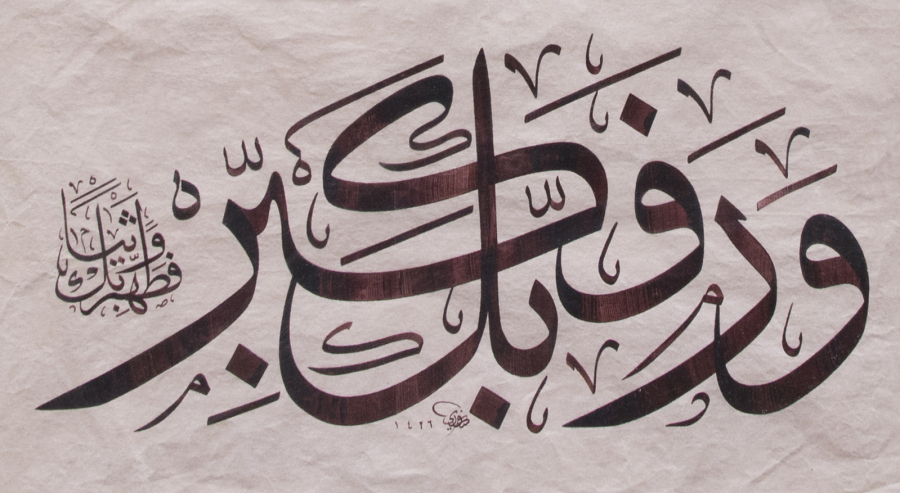 وَرَبَّكَ فَكَبِّرْ
وَثِيَابَكَ فَطَهِّرْ
١٤٢٦